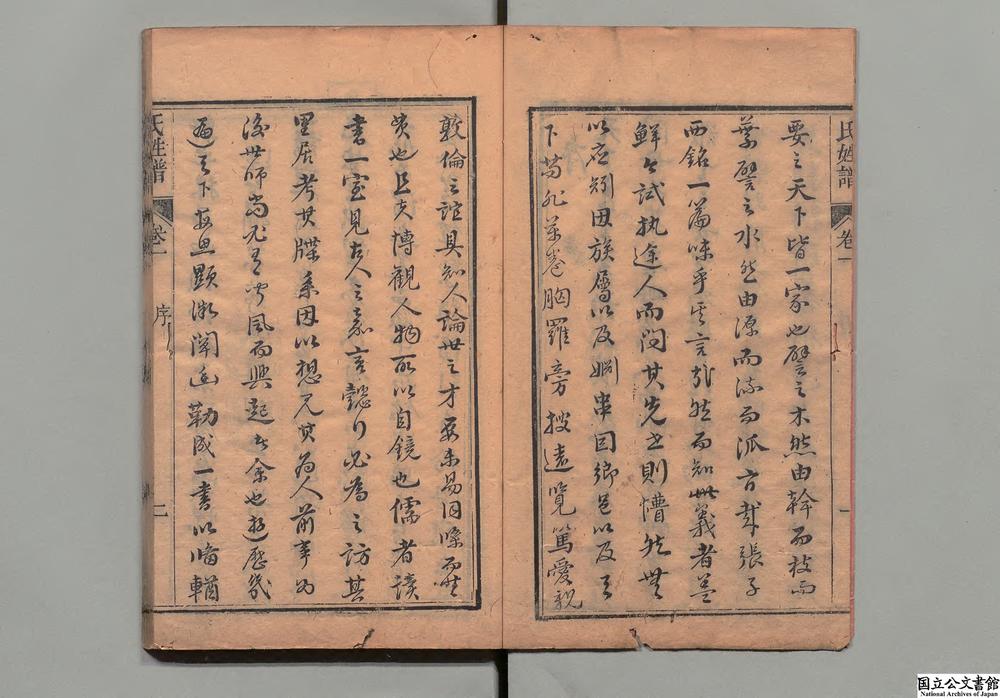 氏姓譜
卷一
一
要之天下皆一家也譬之木然由幹而枝而
葉譬之水然由源而流而派旨哉張子
西銘一篇味乎其言之然而知此義者蓋
鮮今試執途人而問其先世則懵然無
以應矧因族屬以及姻串因鄉邑以及天
下苟非萬卷胸羅旁搜遠覽篤愛親
敦倫之誼具知人論世之才要未易因條而
貫也且夫博觀人物所以自鏡也儒者讀
書一室見古人之嘉言懿行必為之訪其
里居考其牒系因以想見其為人前事為
後世師尚凡有聞風而興起者余也遊歷幾
遍天下每思顯微闡幽勒成一書以備輶
氏姓譜
卷一
序
二
国立公文書館
National Archives of Japan